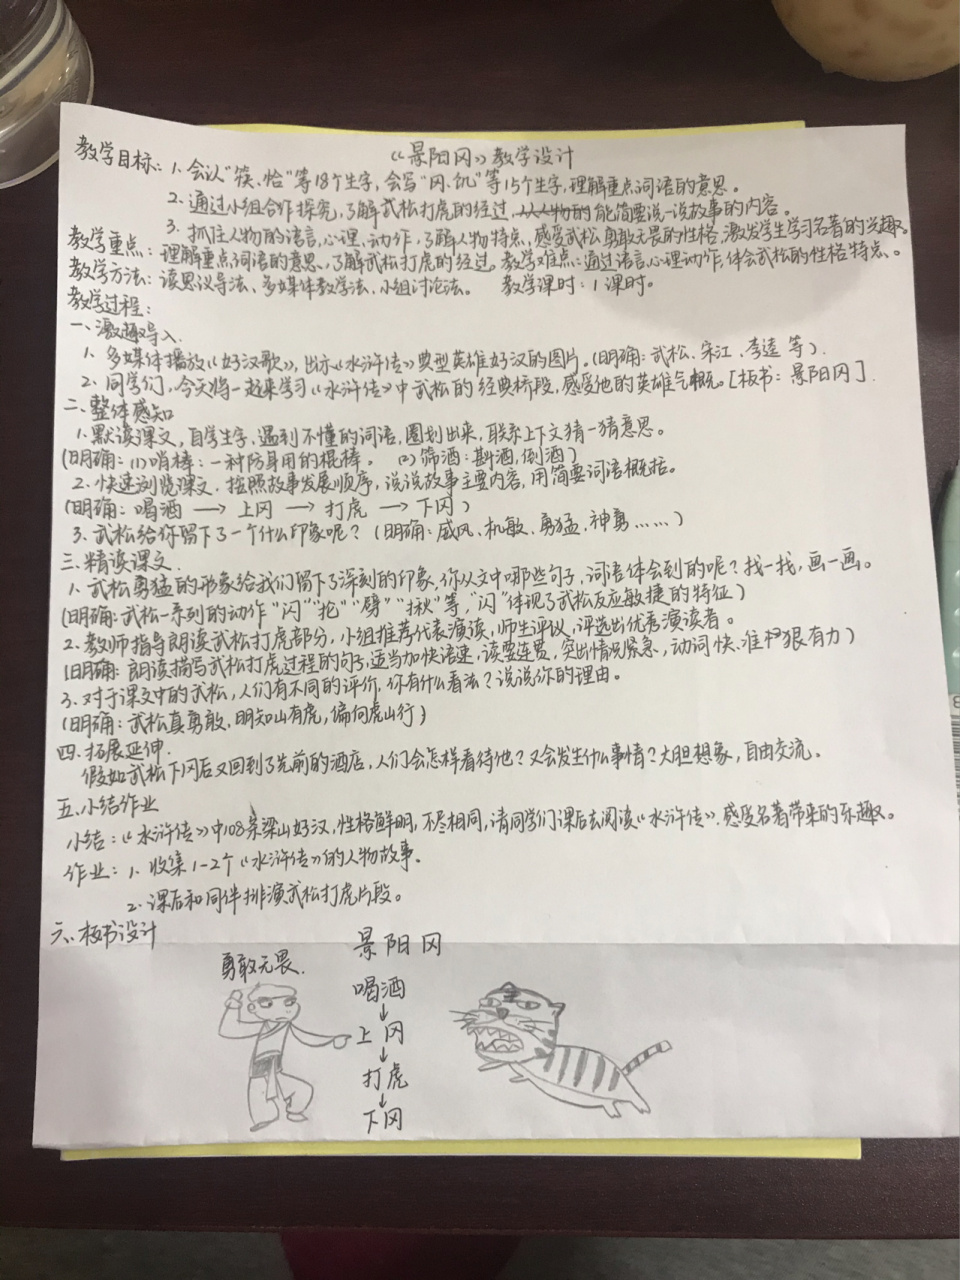 《景阳冈》教学设计
教学目标：1.会认“筷、恰”等18个生字，会写“冈、饥”等15个生字，理解重点词语的意思。
2.通过小组合作探究，了解武松打虎的经过，能简要说一说故事的内容。
3.抓住人物的语言、心理、动作，了解人物特点，感受武松勇敢无畏的性格，激发学生学习名著的兴趣。
教学重点：理解重点词语的意思、了解武松打虎的经过。教学难点：通过语言、心理动作，体会武松的性格特点。
教学方法：读思议导法、多媒体教学法、小组讨论法。 教学课时：1课时。
教学过程：
一、激趣导入.
1.多媒体播放《好汉歌》，出示《水浒传》典型英雄好汉的图片。（明确：武松、宋江、李逵 等）.
2.同学们，今天将一起来学习《水浒传》中武松的经典桥段，感受他的英雄气概。[板书：景阳冈].
二、整体感知
1.默读课文，自学生字，遇到不懂的词语，圈划出来，联系上下文猜一猜意思。
（明确：(1)哨棒：一种防身用的棍棒。 (2)筛酒：斟酒，倒酒）
2.快速浏览课文，按照故事发展顺序，说说故事主要内容，用简要词语概括。
（明确：喝酒 → 上冈 → 打虎 → 下冈）
3.武松给你留下了一个什么印象呢？（明确：威风、机敏、勇猛、神勇……）
三、精读课文.
1.武松勇猛的形象给我们留下了深刻的印象，你从文中哪些句子，词语体会到的呢？找一找，画一画。
（明确：武松一系列的动作“闪”“抡”“劈”“揪”等，“闪”体现了武松反应敏捷的特征）
2.教师指导朗读武松打虎部分，小组推荐代表演读，师生评议，评选出优秀演读者。
（明确：朗读描写武松打虎过程的句子，适当加快语速，读要连贯，突出情况紧急，动词快、准、狠、有力）
3.对于课文中的武松，人们有不同的评价，你有什么看法？说说你的理由。
（明确：武松真勇敢，明知山有虎，偏向虎山行）
四、拓展延伸.
假如武松下冈后又回到了先前的酒店，人们会怎样看待他？又会发生什么事情？大胆想象，自由交流。
五、小结作业
小结：《水浒传》中108条梁山好汉，性格鲜明，不尽相同，请同学们课后去阅读《水浒传》，感受名著带来的乐趣。
作业：1.收集1-2个《水浒传》的人物故事.
2.课后和同伴排演武松打虎片段。
六、板书设计
景阳冈
勇敢无畏.
喝酒
↓
上冈
↓
打虎
↓
下冈